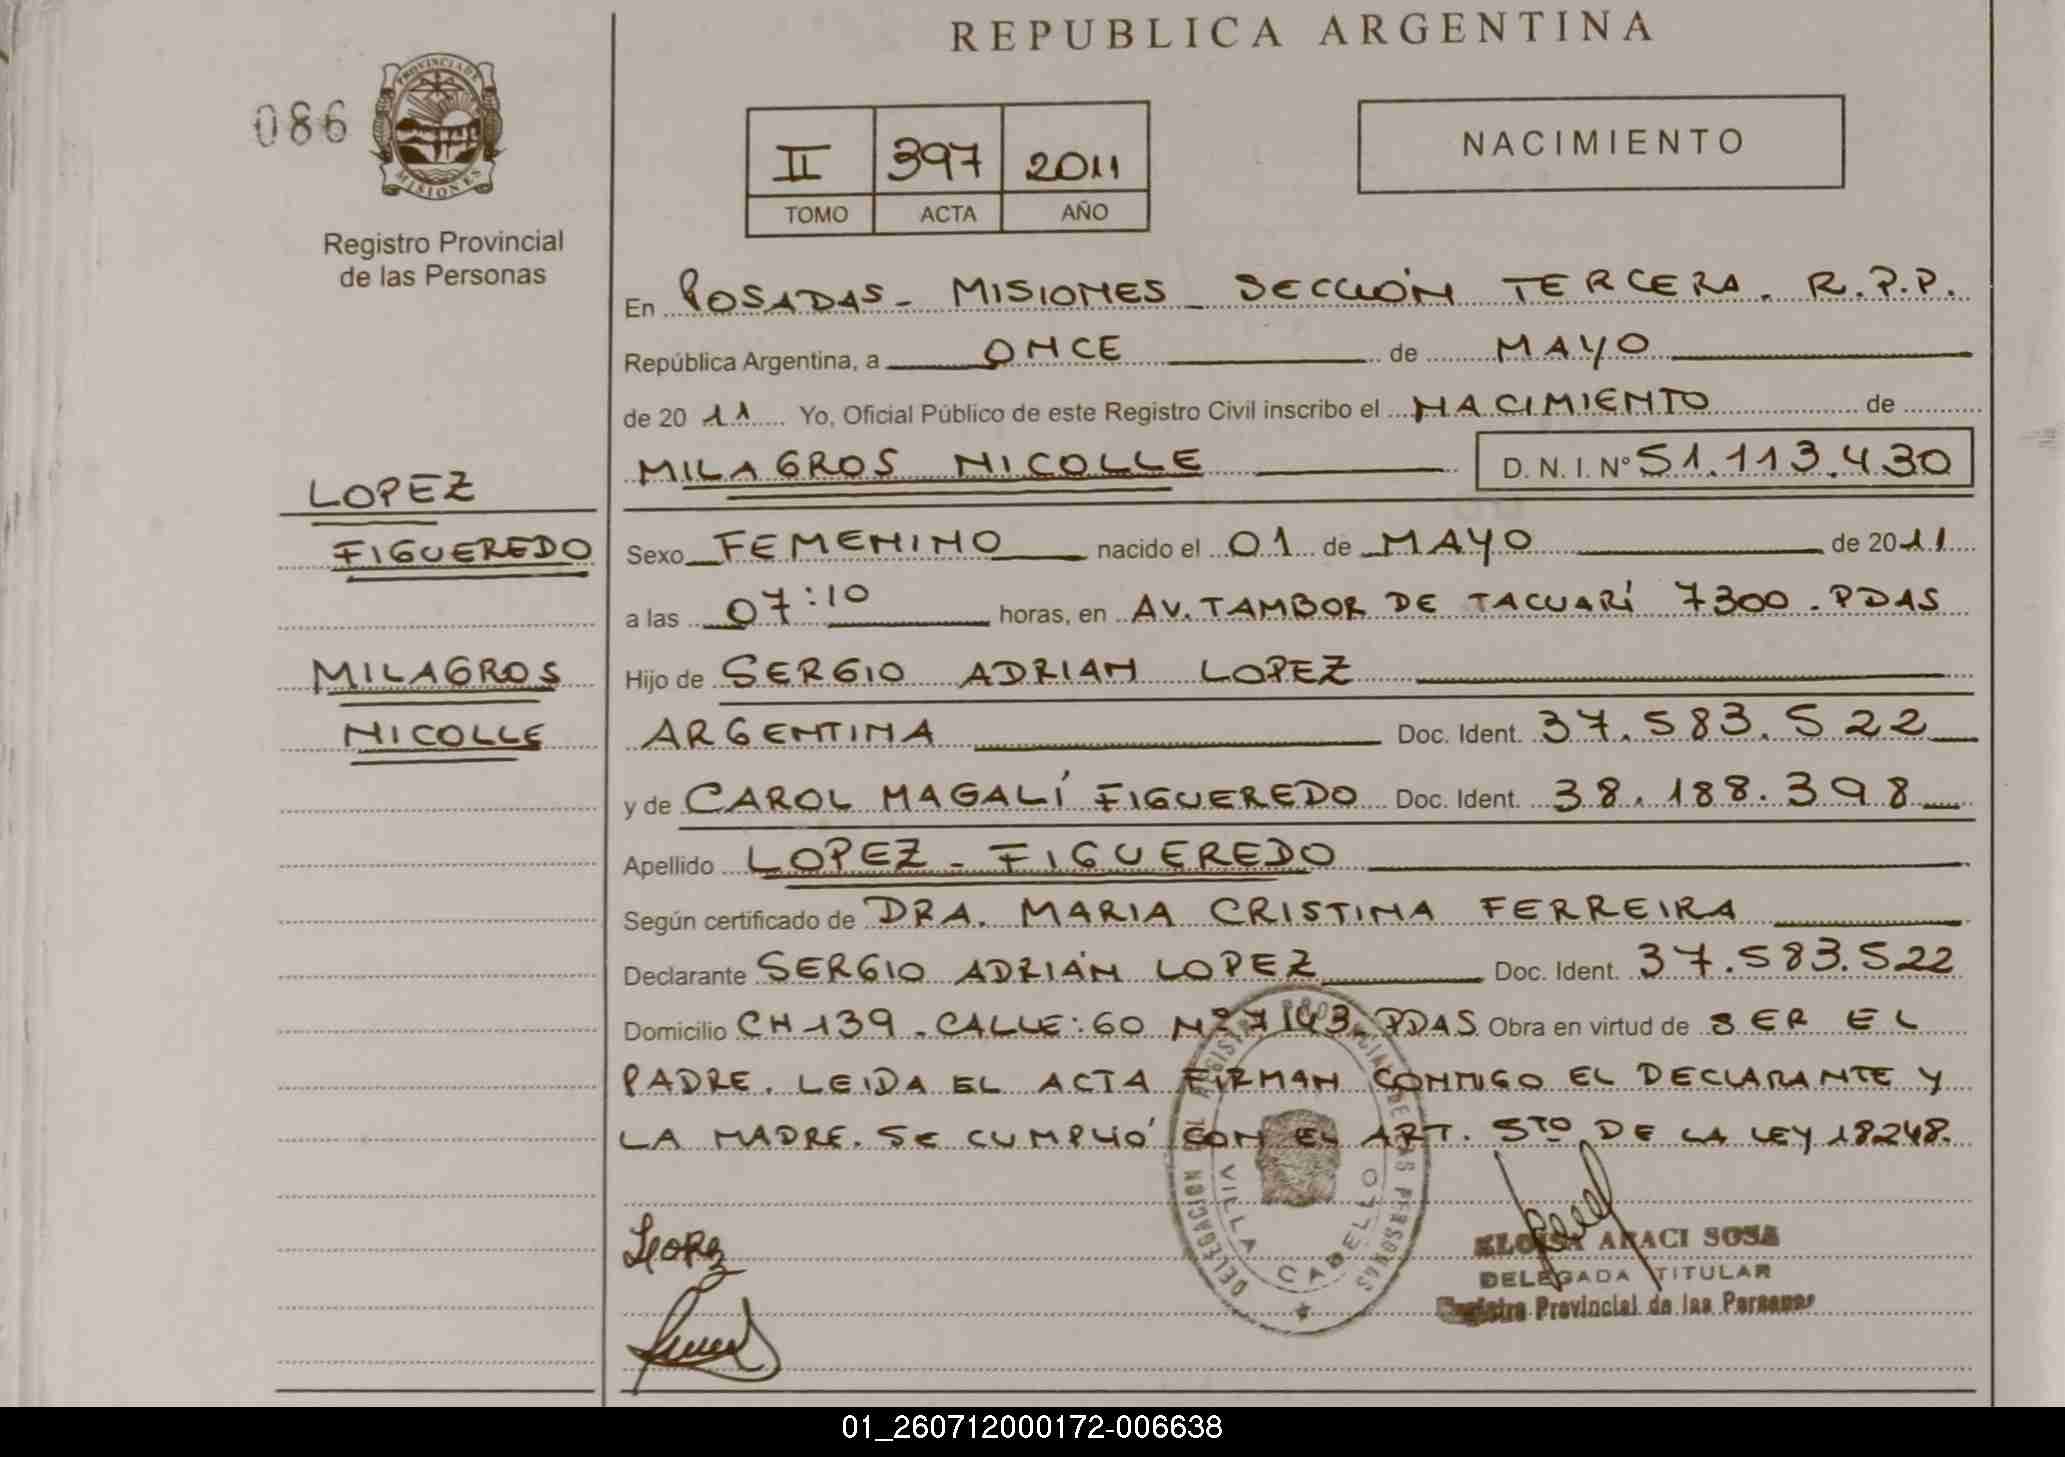 REPUBLICA ARGENTINA
086
PROVINCIA DE
MISIONES
Registro Provincial
de las Personas
II 397 2011
TOMO ACTA AÑO
NACIMIENTO
En POSADAS - MISIONES - SECCIÓN TERCERA. R.P.P.
República Argentina, a ONCE de MAYO
de 2011 Yo, Oficial Público de este Registro Civil inscribo el NACIMIENTO de
MILAGROS NICOLLE D. N. I. Nº 51.113.430
LOPEZ
FIGUEREDO
MILAGROS
NICOLLE
Sexo FEMENINO nacido el 01 de MAYO de 2011
a las 07:10 horas, en AV. TAMBOR DE TACUARÍ 7300. PDAS
Hijo de SERGIO ADRIAN LOPEZ
ARGENTINA Doc. Ident. 37.583.522
y de CAROL MAGALÍ FIGUEREDO Doc. Ident. 38.188.398
Apellido LOPEZ - FIGUEREDO
Según certificado de DRA. MARIA CRISTINA FERREIRA
Declarante SERGIO ADRIÁN LOPEZ Doc. Ident. 37.583.522
Domicilio CH 139. CALLE: 60 Nº 7143. PDAS Obra en virtud de SER EL
PADRE. LEIDA EL ACTA FIRMAN CONMIGO EL DECLARANTE Y
LA MADRE. SE CUMPLIÓ CON EL ART. 5TO. DE LA LEY 18248.
DELEGACION DEL REGISTRO PROVINCIAL DE LAS PERSONAS
VILLA CABELLO
ELOISA ARACI SOSA
DELEGADA TITULAR
Registro Provincial de las Personas
01_260712000172-006638